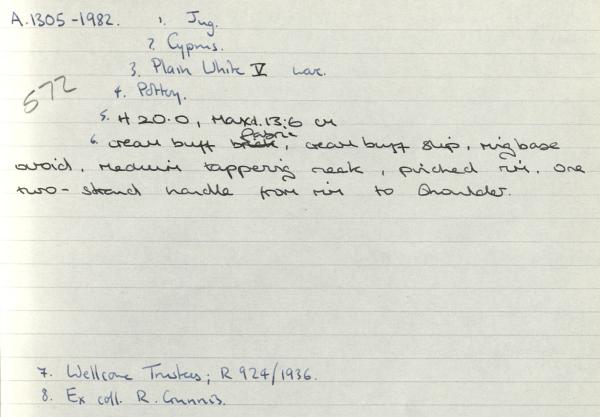 A.1305-1982. 1. Jug.
2. Cyprus.
3. Plain White V ware.
572
4. Pottery.
5. H 20.0, Max d. 13.6 cm
6. cream buff fabric, cream buff slip, ring base
ovoid, medium tappering neck, pinched rim, one
two-strand handle from rim to shoulder.
7. Wellcome Trustees; R 924/1936.
8. Ex coll. R. Gunnis.